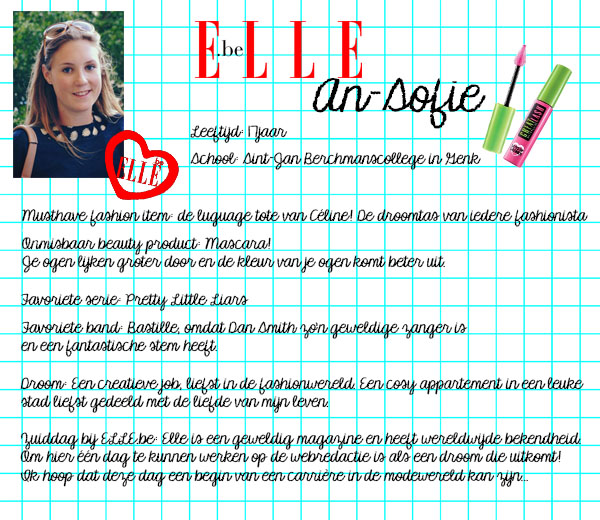 E.be L L E
An-Sofie
Leeftijd: 17jaar
School: Sint-Jan Berchmanscollege in Genk
ELLE
GREAT LASH
Musthave fashion item: de luguage tote van Céline! De droomtas van iedere fashionista
Onmisbaar beauty product: Mascara!
Je ogen lijken groter door en de kleur van je ogen komt beter uit.
Favoriete serie: Pretty Little Liars
Favoriete band: Bastille, omdat Dan Smith zo'n geweldige zanger is
en een fantastische stem heeft.
Droom: Een creatieve job, liefst in de fashionwereld. Een cosy appartement in een leuke
stad liefst gedeeld met de liefde van mijn leven.
Zuiddag bij ELLE.be: Elle is een geweldig magazine en heeft wereldwijde bekendheid.
Om hier één dag te kunnen werken op de webredactie is als een droom die uitkomt!
Ik hoop dat deze dag een begin van een carrière in de modewereld kan zijn...